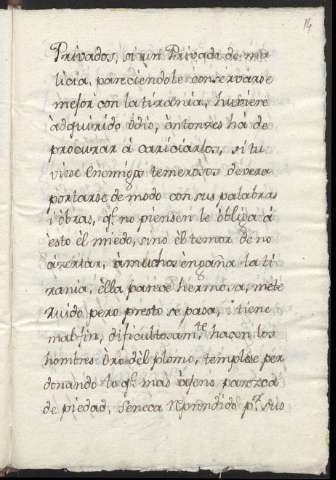 14
Privados, si un Privado de ma-
licia, pareciendole conservarse
mejor con la tirania, hubiere
adquirido odio, entonses ha de
procurar á cariciarlos, si tu
viese enemigos temerosos devera
portarse de modo con sus palabras
i obras, q.e no piensen le obliga á
esto él miedo, sino él temor de no
azertar, á muchos engaña la ti
rania, élla parece hermosa, mete
Ruido pero presto se pasa, i tiene
mal fin, dificultosam.te hacen los
hombres Oro del plomo, templese per
donando lo q.e mas ageno parezca
de piedad, Seneca Reprendido p.r sus